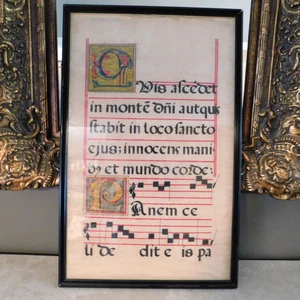 Quis ascēdet
in montē dn̄i autquis
stabit in loco sancto
ejus; innocens mani
et mundo corde:
Panem ce
li de dit e is pa